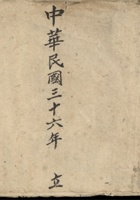 中華民國三十六年 立